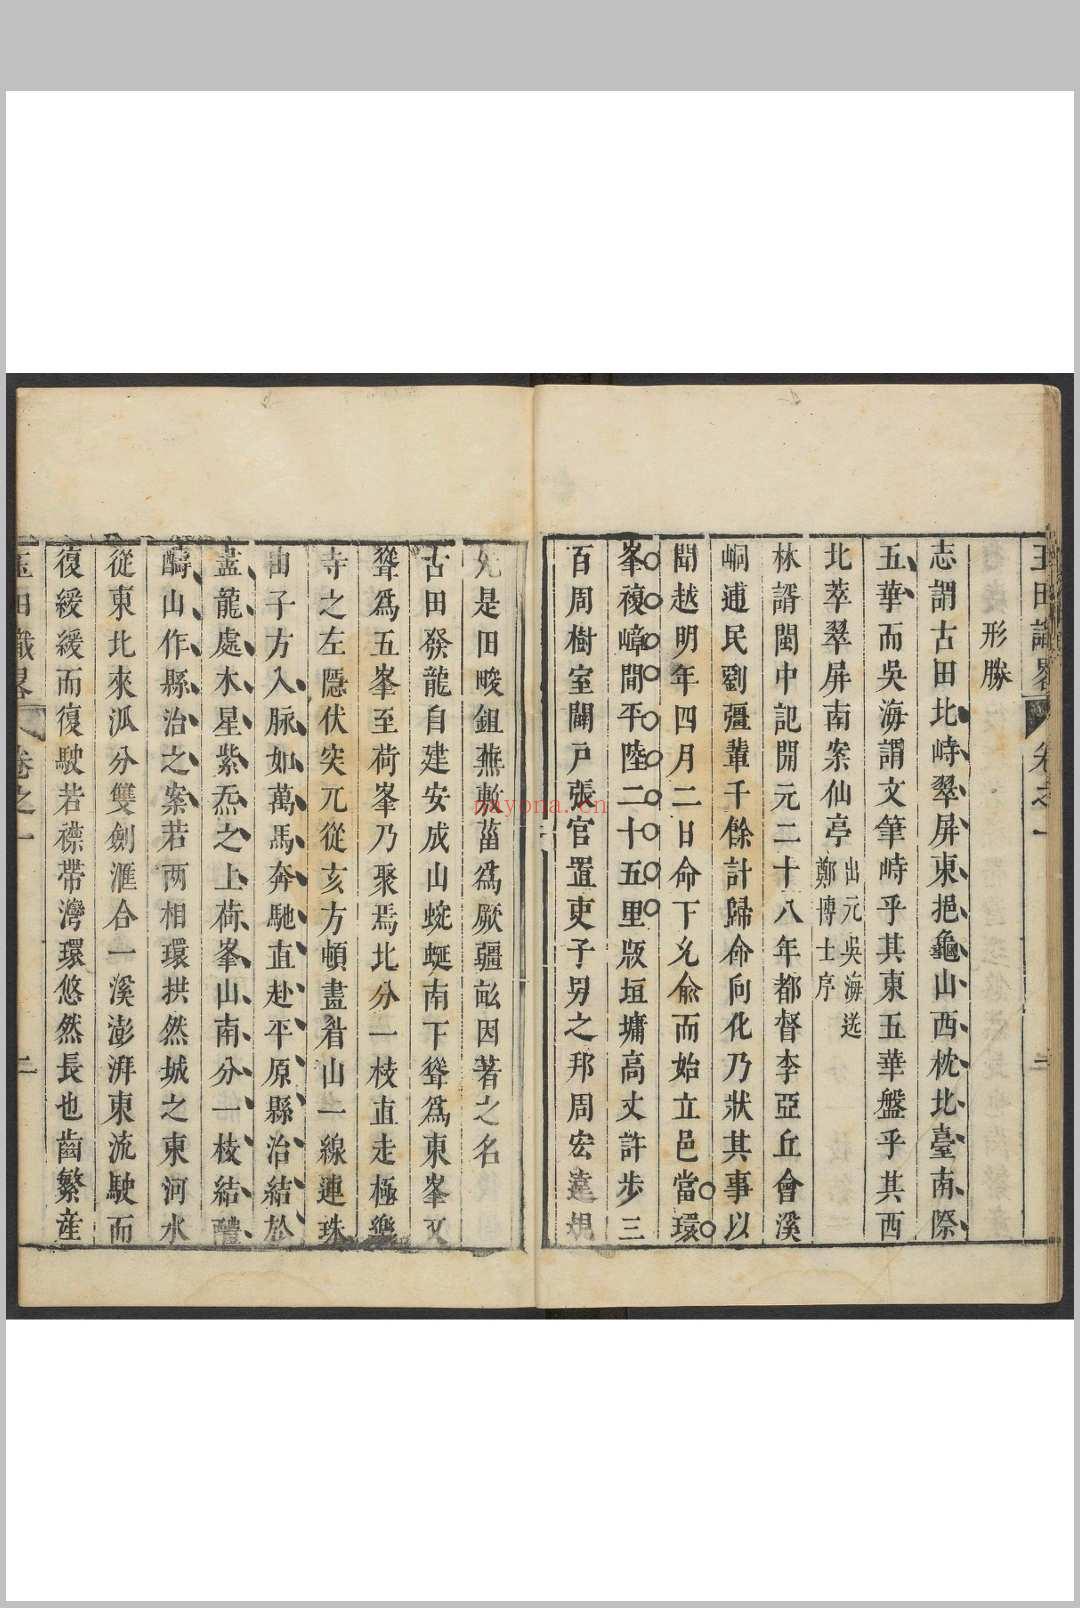 玉田識畧 卷之一 二
形勝
志謂古田北峙翠屏東挹龜山西枕北臺南際
五華而吳海謂文筆峙乎其東五華盤乎其西
北萃翠屏南案仙亭
出元吳海送
鄭博士序
林諝閩中記開元二十八年都督李亞丘會溪
峒逋民劉疆輩千餘計歸命向化乃狀其事以
聞越明年四月二日命下允俞而始立邑當環
峯複嶂間平陸二十五里厥垣墉高丈許步三
百周樹室闢戶張官置吏子男之邦周宏達規
先是田畯鉏蕪斬菑為厥疆畝因著之名
古田發龍自建安成山蜿蜒南下聳為東峯又
聳為五峯至荷峯乃聚焉北分一枝直走極樂
寺之左隱伏突兀從亥方頓畫眉山一線連珠
由子方入脉如萬馬奔馳直赴平原縣治結於
盡龍處水星紫炁之上荷峯山南分一枝結醴
疇山作縣治之案若两相環拱然城之東河水
從東北來泒分雙劍滙合一溪澎湃東流駛而
復緩緩而復駛若襟帶灣環悠然長也齒繁産
玉田識畧 卷之一 二
nayona.cn